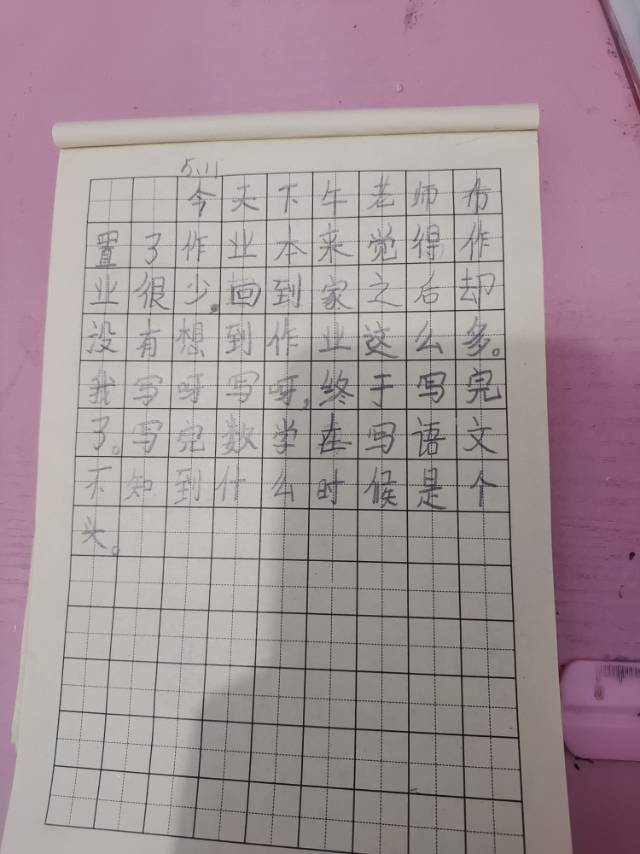 5.11
今天下午老师布
置了作业本来觉得作
业很少。回到家之后却
没有想到作业这么多。
我写呀写呀,终于写完
了。写完数学在写语文
不知到什么时候是个
头。